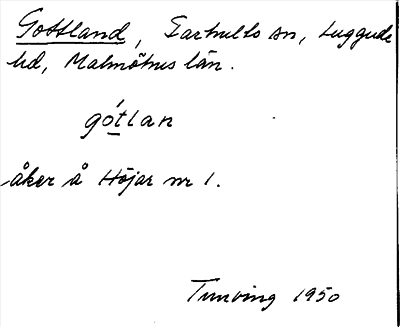 Gottland, Farhults sn, Luggude
hd, Malmöhus län.
gótlan
åker å Höjar nr 1.
Tunving 1950